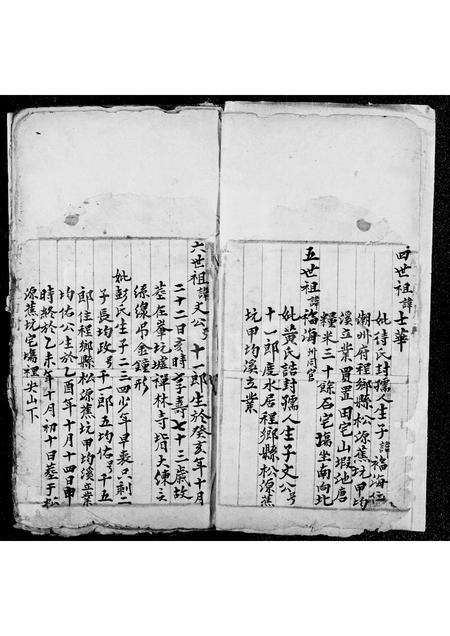 四世祖諱士華
妣待氏封孺人生子諱福海仁
潮州府程鄉縣松源蕉坑甲均
溪立業買置田宅山塅地唐
糧米三十餘石宅塲坐南向北
五世祖諱福海州同官
妣黃氏誥封孺人生子文公号
十一郎度水居程鄉縣松源蕉
坑甲均溪立業
六世祖諱文公号十一郎生於癸亥年十月
二十二日亥時享壽七十三歲故
墓在畬坑墟禪林寺背大陳
絲線吊金鐘形
妣彭氏生子二三四少年早喪只剩二
子長均政号千一郎五均佑号千五
郎住程鄉縣松源蕉坑甲均溪立業
均佑公生於乙酉年十月十四日申
時終於乙未年十月初十日墓于松
源蕉坑宅塲裡尖山下